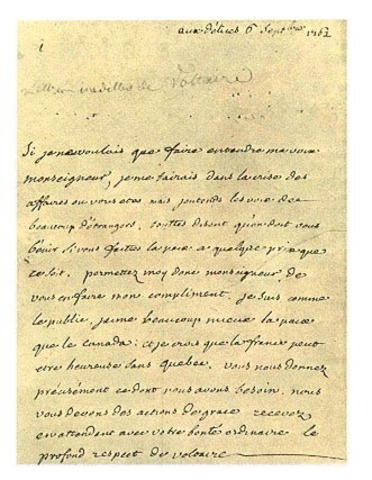 aux délices 6 Septbre 1762
1
Lettres inédites de Voltaire
Si je ne voulais que faire entendre ma voix
monseigneur, je me tairais dans la crise des
affaires ou vous etes mais j'entends les voix de
beaucoup d'étrangers, touttes disent qu'on doit vous
bénir si vous faittes la paix a quelque prix que
ce soit. permettez moy donc monseigneur de
vous en faire mon compliment. je suis comme
le public, j'aime beaucoup mieux la paix
que le canada: et je crois que la france peut
etre heureuse sans Quebec. vous nous donnez
précisément ce dont nous avons besoin. nous
vous devons des actions de grace recevez
en attendant avec votre bonté ordinaire le
profond respect de voltaire